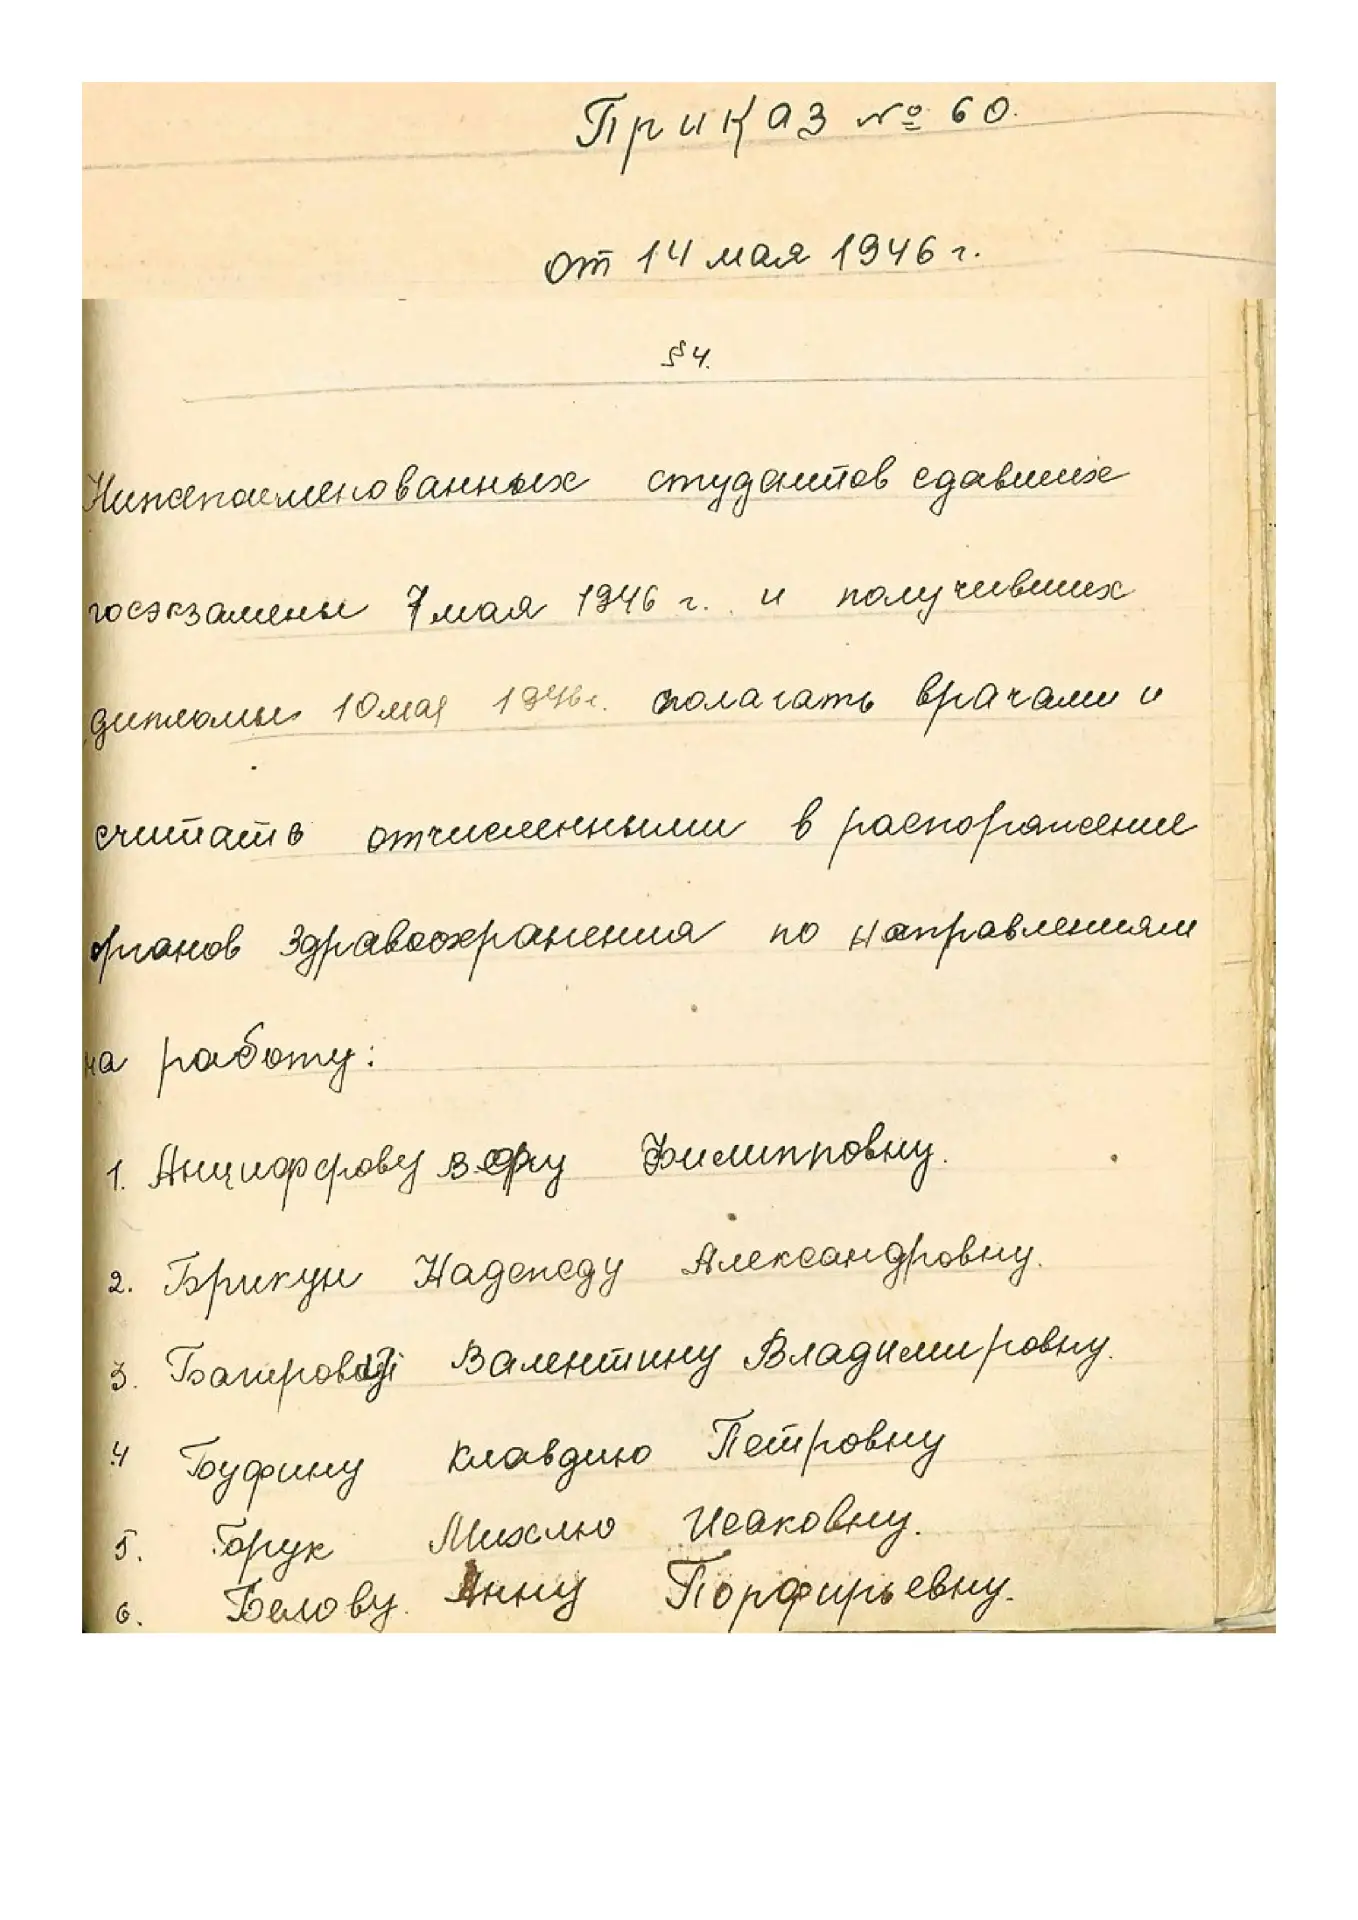 Приказ № 60.
от 14 мая 1946 г.
§ 4.
Нижепоименованных студентов сдавших
госэкзамены 7 мая 1946 г. и получивших
дипломы 10 мая 1946 г. полагать врачами и
считать отчисленными в распоряжение
органов здравоохранения по направлениям
на работу:
1. Анциферову Веру Филипповну.
2. Брикун Надежду Александровну.
3. Валентину Владимировну.
4 Буфину Клавдию Петровну
5. Борук Михлю Исаковну.
6. Белову Анну Порфирьевну.